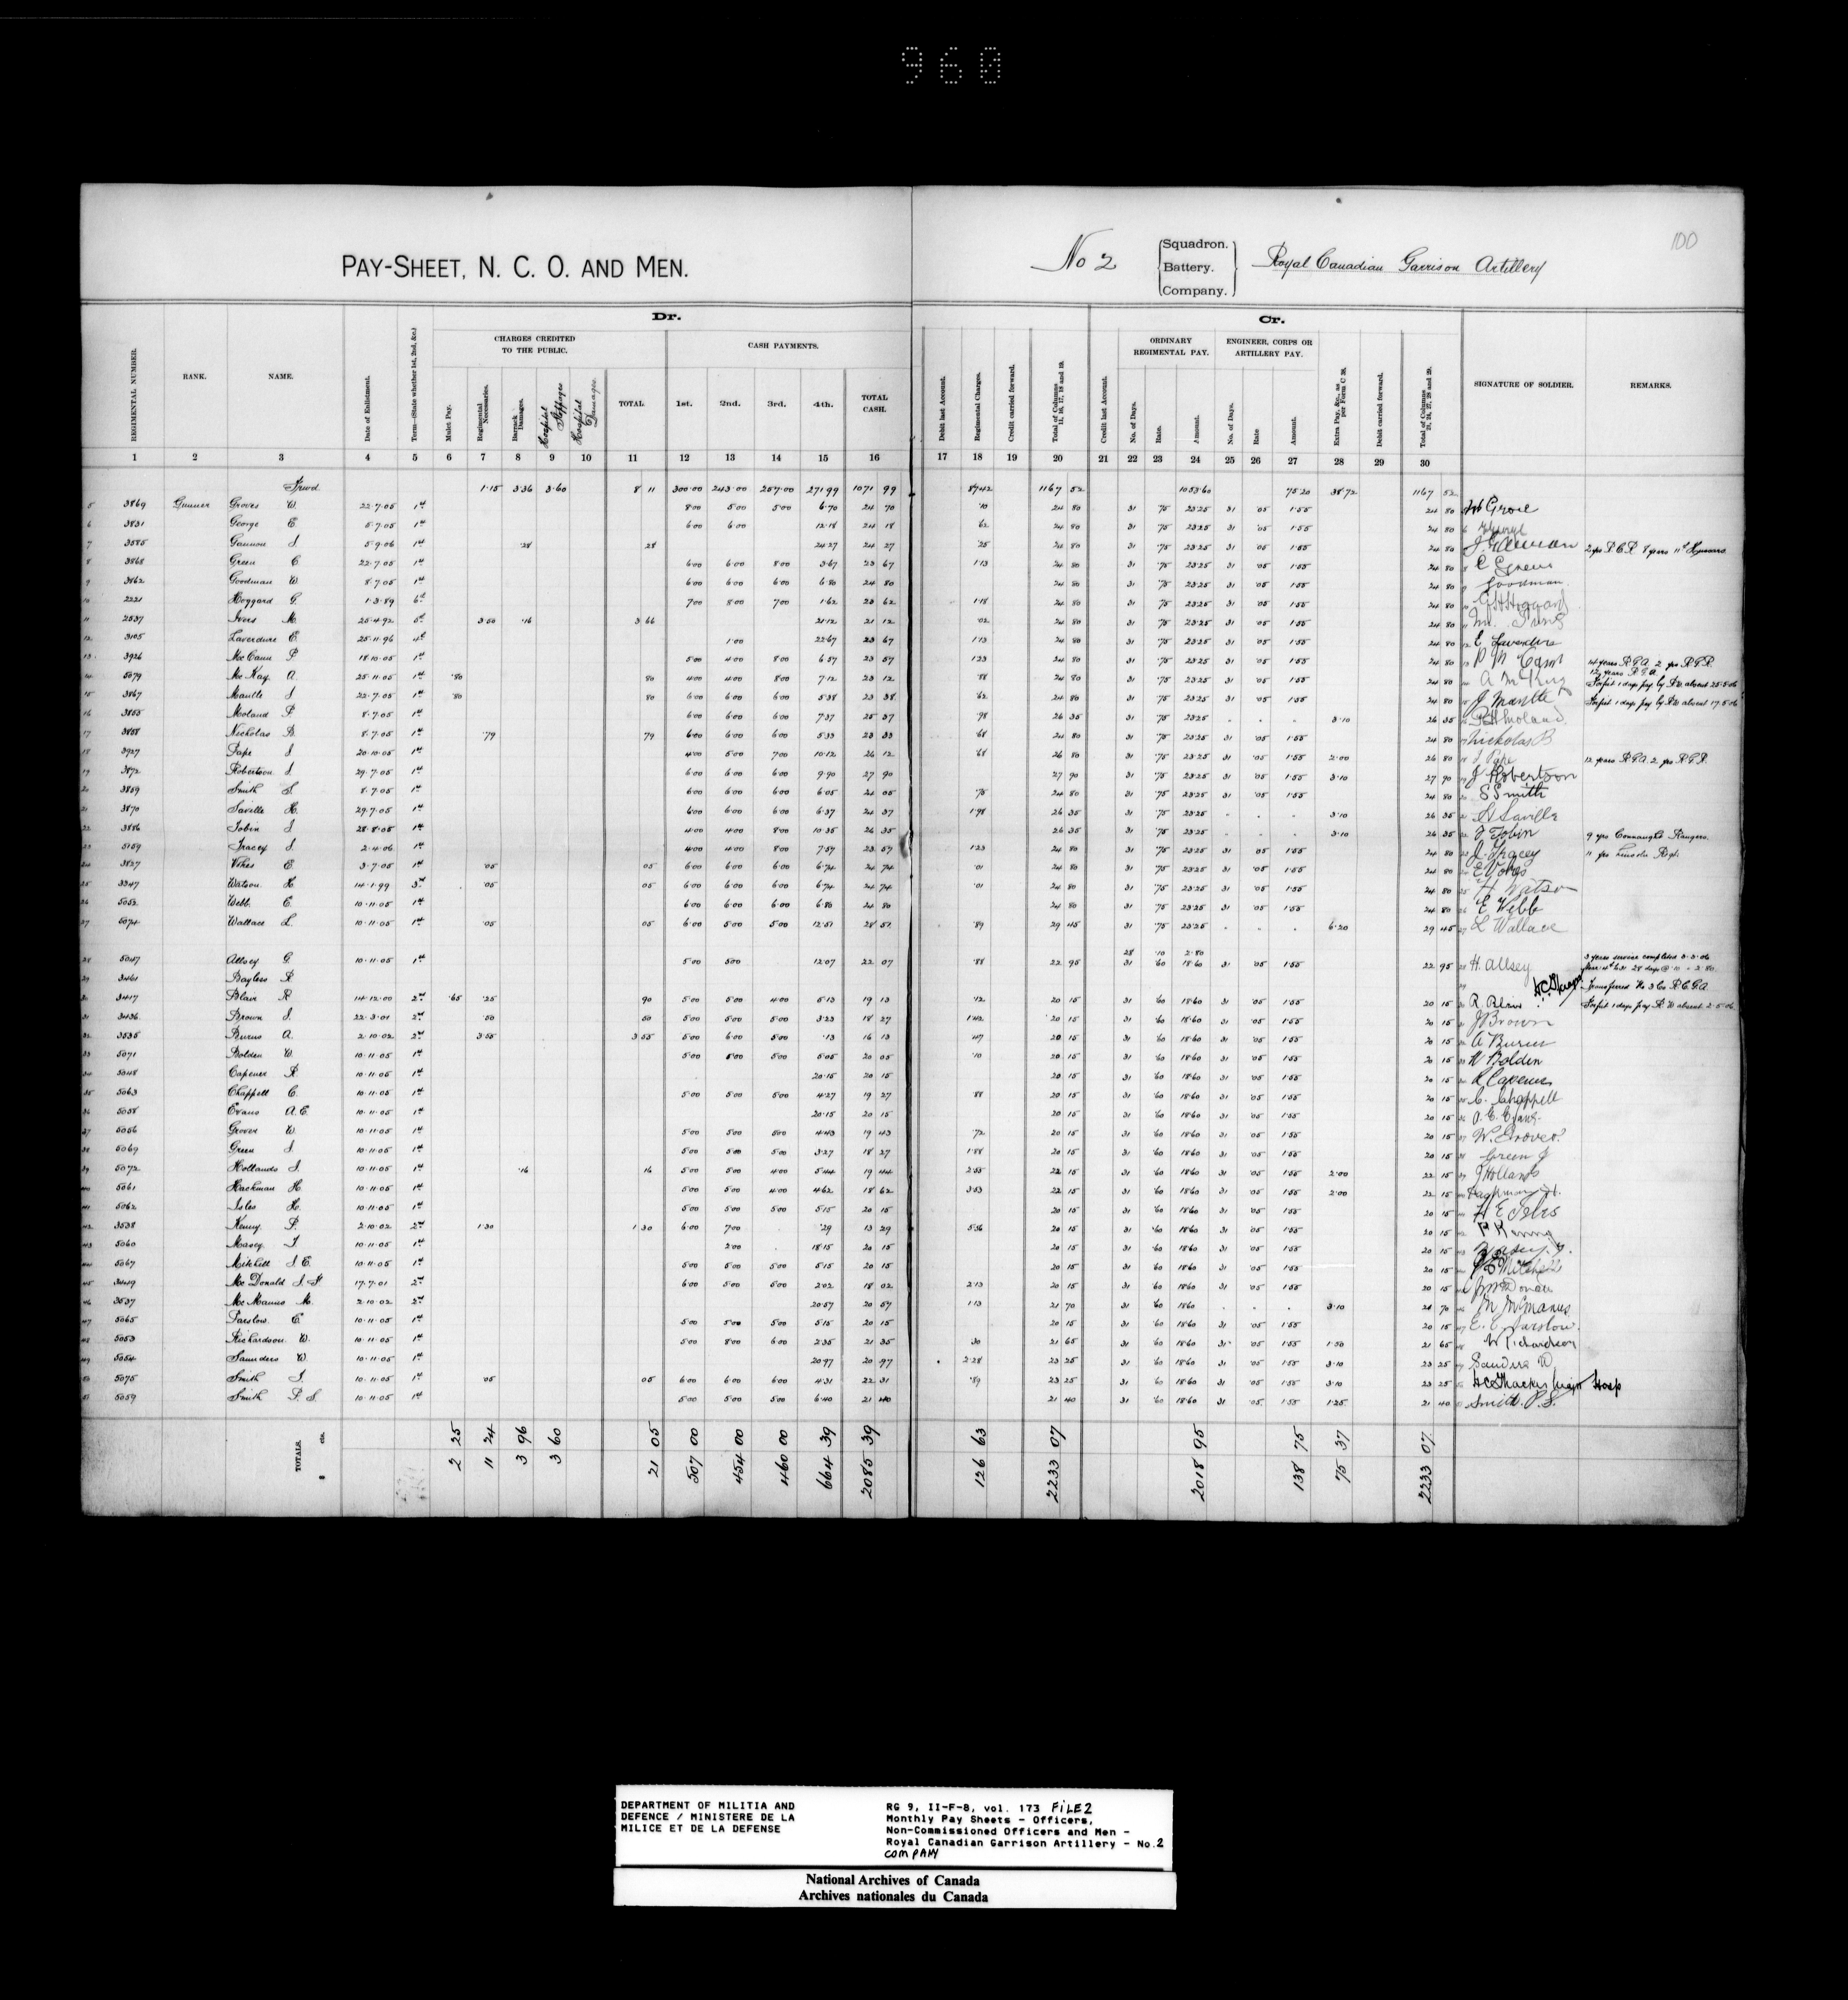 960
100
PAY-SHEET, N. C. O. AND MEN.
No 2 Squadron. Battery. Company. Royal Canadian Garrison Artillery
Dr. Cr.
CHARGES CREDITED TO THE PUBLIC. CASH PAYMENTS. ORDINARY REGIMENTAL PAY. ENGINEER, CORPS OR ARTILLERY PAY.
REGIMENTAL NUMBER. RANK. NAME. Date of Enlistment. Term—(State whether 1st, 2nd, &c.) Mulct Pay. Regimental Necessaries. Barrack Damages. Hospital Stoppages Hospital Damages. TOTAL. 1st. 2nd. 3rd. 4th. TOTAL CASH. Debit last Account. Regimental Charges. Credit carried forward. Total of Columns 11, 16, 17, 18 and 19. Credit last Account. No. of Days. Rate. Amount. No. of Days. Rate Amount. Extra Pay, &c., as per Form C 38. Debit carried forward. Total of Columns 21, 24, 27, 28 and 29. SIGNATURE OF SOLDIER. REMARKS.
1 2 3 4 5 6 7 8 9 10 11 12 13 14 15 16 17 18 19 20 21 22 23 24 25 26 27 28 29 30
Frwd. 1.15 3.36 3.60 8 11 300.00 243.00 257.00 271.99 1071 99 87.42 1167 52 1053.60 75.20 38.72 1167 52
5 3869 Gunner Groves W. 22.7.05 1st 8.00 5.00 5.00 6.70 24 70 .10 24 80 31 .75 23.25 31 .05 1.55 24 80
6 3831 George E. 5.7.05 1st 6.00 6.00 12.18 24 18 .62 24 80 31 .75 23.25 31 .05 1.55 24 80
7 3585 Gannon J 5.9.06 1st .28 28 24.27 24 27 .25 24 80 31 .75 23.25 31 .05 1.55 24 80
8 3868 Green C 22.7.05 1st 6.00 6.00 8.00 3.67 23 67 1.13 24 80 31 .75 23.25 31 .05 1.55 24 80
9 3862 Goodman W. 8.7.05 1st 6.00 6.00 6.00 6.80 24 80 24 80 31 .75 23.25 31 .05 1.55 24 80 Goodman
10 2221 Hoggard G. 1.3.89 6th 7.00 8.00 7.00 1.62 23 62 1.18 24 80 31 .75 23.25 31 .05 1.55 24 80
11 2537 Ives M. 25.4.92 5th 3.50 .16 3 66 21.12 21 12 .02 24 80 31 .75 23.25 31 .05 1.55 24 80
12 3105 Laverdure E. 25.11.96 4th 1.00 22.67 23 67 1.13 24 80 31 .75 23.25 31 .05 1.55 24 80 E Laverdure
13 3926 McCann P. 18.10.05 1st 5.00 4.00 8.00 6.57 23 57 1.23 24 80 31 .75 23.25 31 .05 1.55 24 80 14 years R.G.A. 2 yrs R.G.R.
14 5079 McKay A. 25.11.05 1st .80 80 4.00 4.00 8.00 7.12 23 12 .88 24 80 31 .75 23.25 31 .05 1.55 24 80 A McKay 12 years R.G.A. Forfeit 1 days pay by R.W. absent 25.5.06
15 3867 Mantle J 22.7.05 1st .80 80 6.00 6.00 6.00 5.38 23 38 .62 24 80 31 .75 23.25 31 .05 1.55 24 80 J Mantle Forfeit 1 days pay by R.W. absent 17.5.06
16 3855 Moland P. 8.7.05 1st 6.00 6.00 6.00 7.37 25 37 .98 26 35 31 .75 23.25 3.10 26 35
17 3858 Nicholas B. 8.7.05 1st .79 79 6.00 6.00 6.00 5.33 23 33 .68 24 80 31 .75 23.25 31 .05 1.55 24 80 Nicholas B
18 3927 Pape J 20.10.05 1st 4.00 5.00 7.00 10.12 26 12 .68 26 80 31 .75 23.25 31 .05 1.55 2.00 26 80 J Pape 12 years R.G.A. 2 yrs R.G.R.
19 3872 Robertson J. 29.7.05 1st 6.00 6.00 6.00 9.90 27 90 27 90 31 .75 23.25 31 .05 1.55 3.10 27 90 J Robertson
20 3859 Smith S 8.7.05 1st 6.00 6.00 6.00 6.05 24 05 .75 24 80 31 .75 23.25 31 .05 1.55 24 80 S Smith
21 3870 Saville H. 29.7.05 1st 6.00 6.00 6.00 6.37 24 37 1.98 26 35 31 .75 23.25 3.10 26 35 H Saville
22 3886 Tobin J 28.8.05 1st 4.00 4.00 8.00 10.35 26 35 26 35 31 .75 23.25 3.10 26 35 J Tobin 9 yrs Connaught Rangers.
23 5159 Tracey J 2.4.06 1st 4.00 4.00 8.00 7.57 23 57 1.23 24 80 31 .75 23.25 31 .05 1.55 24 80 J. Tracey 11 yrs Lincoln Regt.
24 3827 Vokes E. 3.7.05 1st .05 05 6.00 6.00 6.00 6.74 24 74 .01 24 80 31 .75 23.25 31 .05 1.55 24 80 E Vokes
25 3347 Watson H. 14.1.99 3rd .05 05 6.00 6.00 6.00 6.74 24 74 .01 24 80 31 .75 23.25 31 .05 1.55 24 80 H Watson
26 5052 Webb E. 10.11.05 1st 6.00 6.00 6.00 6.80 24 80 24 80 31 .75 23.25 31 .05 1.55 24 80 E Webb
27 5074 Wallace L. 10.11.05 1st .05 05 6.00 5.00 5.00 12.51 28 51 .89 29 45 31 .75 23.25 6.20 29 45 L Wallace
28 .10 2.80
28 5047 Allsey G. 10.11.05 1st 5.00 5.00 12.07 22 07 .88 22 95 31 .60 18.60 31 .05 1.55 22 95 H. Allsey 3 years service completed
29 3461 Bayless R Transferred No 3 Co R.C.G.A.
30 3417 Blair R 14.12.00 2nd .65 .25 90 5.00 5.00 4.00 5.13 19 13 .12 20 15 31 .60 18.60 31 .05 1.55 20 15 R Blair Forfeit 1 days pay R.W. absent 2.5.06
31 3436 Brown J. 22.3.01 2nd .50 50 5.00 5.00 5.00 3.23 18 27 1.42 20 15 31 .60 18.60 31 .05 1.55 20 15 J Brown
32 3535 Burns A. 2.10.02 2nd 3.55 3 55 5.00 6.00 5.00 .13 16 13 .47 20 15 31 .60 18.60 31 .05 1.55 20 15 A Burns
33 5071 Bolden W. 10.11.05 1st 5.00 5.00 5.00 5.05 20 05 .10 20 15 31 .60 18.60 31 .05 1.55 20 15 W Bolden
34 5048 Capener R 10.11.05 1st 20.15 20 15 20 15 31 .60 18.60 31 .05 1.55 20 15 R Capener
35 5063 Chappell C. 10.11.05 1st 5.00 5.00 5.00 4.27 19 27 .88 20 15 31 .60 18.60 31 .05 1.55 20 15 C. Chappell
36 5058 Evans A.E. 10.11.05 1st 20.15 20 15 20 15 31 .60 18.60 31 .05 1.55 20 15 A. E. Evans
37 5056 Grover W. 10.11.05 1st 5.00 5.00 5.00 4.43 19 43 .72 20 15 31 .60 18.60 31 .05 1.55 20 15 W. Grover
38 5069 Green J 10.11.05 1st 5.00 5.00 5.00 3.27 18 27 1.88 20 15 31 .60 18.60 31 .05 1.55 20 15 Green J
39 5072 Hollands J. 10.11.05 1st .16 16 5.00 5.00 4.00 5.44 19 44 2.55 22 15 31 .60 18.60 31 .05 1.55 2.00 22 15 J Hollands
40 5061 Hackman H. 10.11.05 1st 5.00 5.00 4.00 4.62 18 62 3.53 22 15 31 .60 18.60 31 .05 1.55 2.00 22 15 Hackman H.
41 5062 Isles H. 10.11.05 1st 5.00 5.00 5.00 5.15 20 15 20 15 31 .60 18.60 31 .05 1.55 20 15 H E Isles
42 3538 Kenny P. 2.10.02 2nd 1.30 1 30 6.00 7.00 .29 13 29 5.56 20 15 31 .60 18.60 31 .05 1.55 20 15 P Kenny
43 5060 Masey T. 10.11.05 1st 2.00 18.15 20 15 20 15 31 .60 18.60 31 .05 1.55 20 15
44 5067 Mitchell J.E. 10.11.05 1st 5.00 5.00 5.00 5.15 20 15 20 15 31 .60 18.60 31 .05 1.55 20 15
45 3449 McDonald J.H. 17.7.01 2nd 6.00 5.00 5.00 2.02 18 02 2.13 20 15 31 .60 18.60 31 .05 1.55 20 15
46 3537 McManus M. 2.10.02 2nd 20.57 20 57 1.13 21 70 31 .60 18.60 3.10 21 70 M McManus
47 5065 Parslow E 10.11.05 1st 5.00 5.00 5.00 5.15 20 15 20 15 31 .60 18.60 31 .05 1.55 20 15 E. C. Parslow.
48 5053 Richardson W. 10.11.05 1st 5.00 8.00 6.00 2.35 21 35 .30 21 65 31 .60 18.60 31 .05 1.55 1.50 21 65 W Richardson
49 5054 Saunders W. 10.11.05 1st 20.97 20 97 2.28 23 25 31 .60 18.60 31 .05 1.55 3.10 23 25
50 5075 Smith J. 10.11.05 1st .05 05 6.00 6.00 6.00 4.31 22 31 .89 23 25 31 .60 18.60 31 .05 1.55 3.10 23 25 H C Thacker Major Hosp
51 5059 Smith P. S. 10.11.05 1st 5.00 5.00 5.00 6.40 21 40 21 40 31 .60 18.60 31 .05 1.55 1.25 21 40 Smith. P. S.
TOTALS. $ cts. 2 25 11 24 3 96 3 60 21 05 507 00 454 00 460 00 664 39 2085 39 126 63 2233 07 2018 95 138 75 75 37 2233 07
DEPARTMENT OF MILITIA AND DEFENCE / MINISTERE DE LA MILICE ET DE LA DEFENSE
RG 9, II-F-8, vol. 173 FILE 2
Monthly Pay Sheets - Officers,
Non-Commissioned Officers and Men -
Royal Canadian Garrison Artillery - No. 2
COMPANY
National Archives of Canada
Archives nationales du Canada